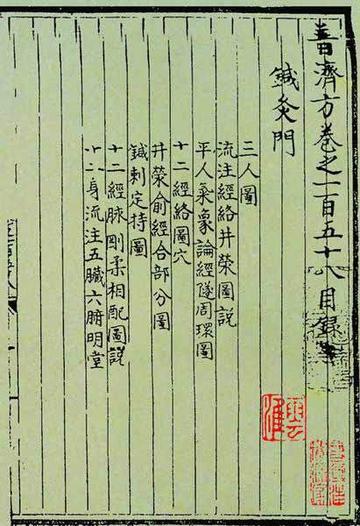 普濟方卷之一百五十八目録
鍼灸門
三人圖
流注經絡井榮圖説
平人氣象論經隧周環圖
十二經絡圖穴
井榮俞經合部分圖
鍼刺定持圖
十二經脉剛柔相配圖説
身流注五臟六腑明堂